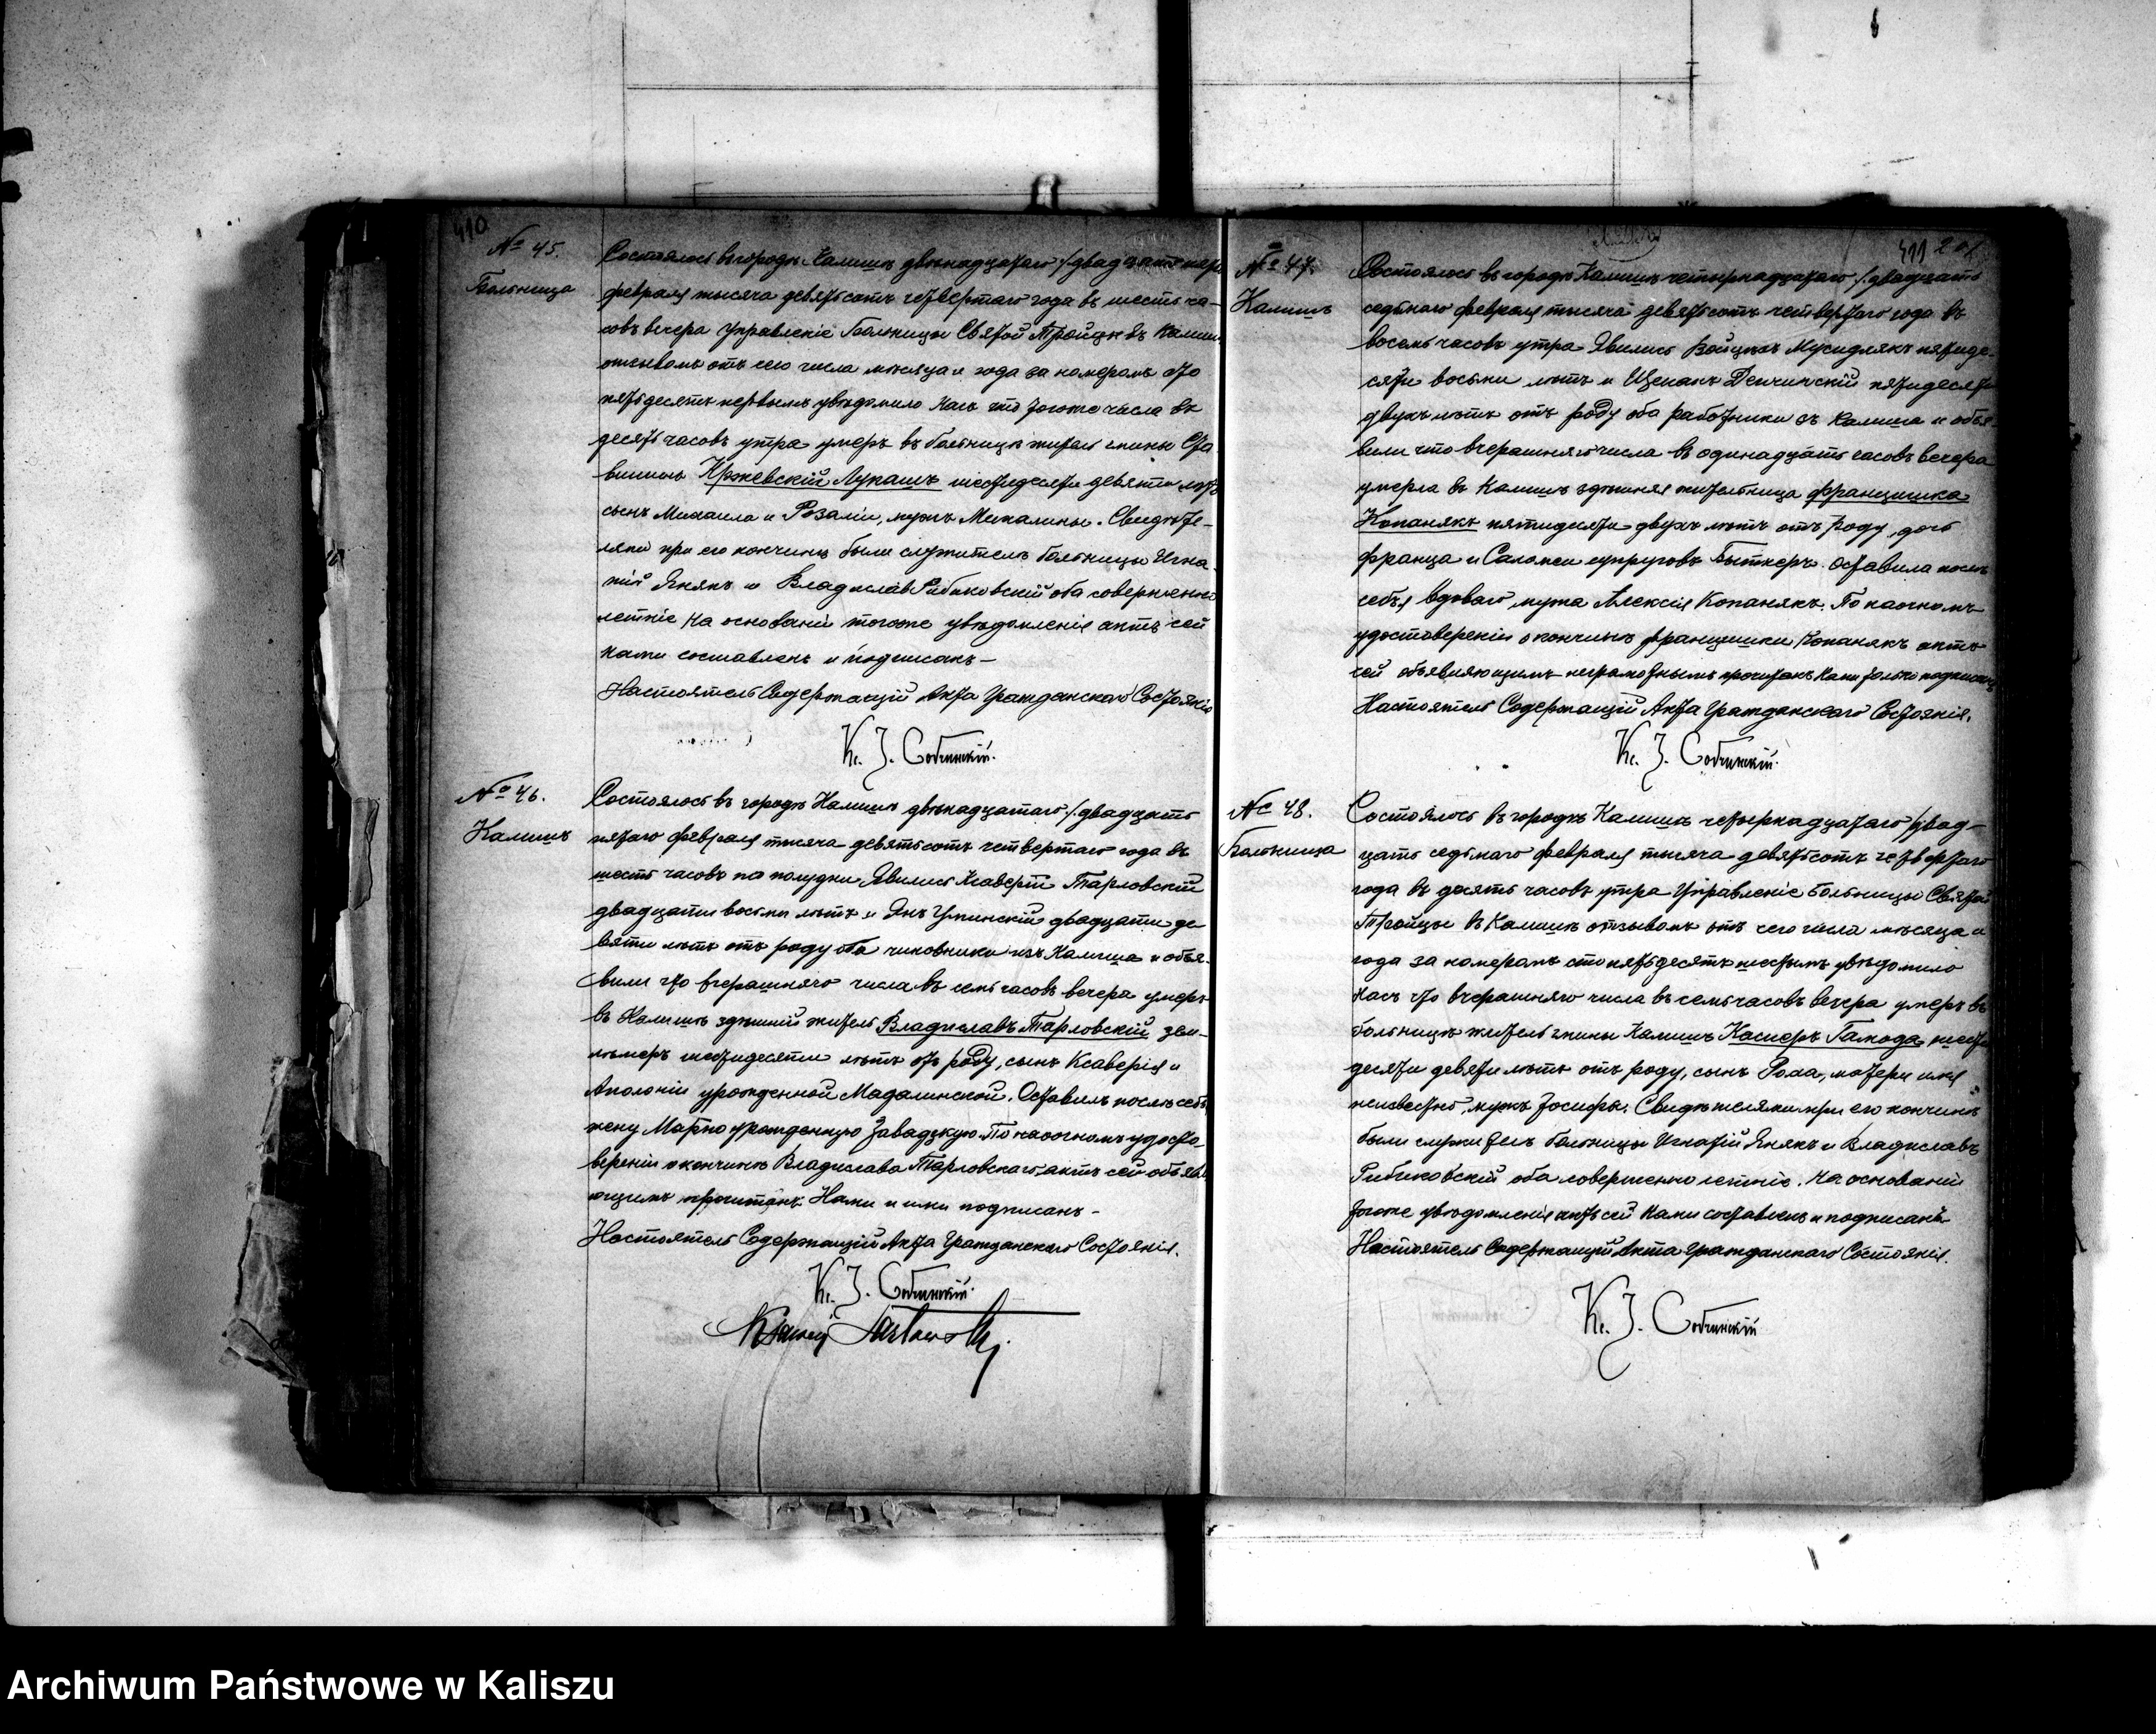 410
№ 45.
Больница
Состоялось въ городѣ Калишѣ двѣнадцатаго /двадцать
февраля тысяча девятьсотъ четвертаго года въ шесть ча-
совъ вечера Управленіе Больницы Святой Тройцы въ Калиш
отзывомъ отъ сего числа мѣсяца и года за номеромъ сто
пятьдесятъ первымъ увѣдомило насъ что тогоже числа въ
десять часовъ утра умеръ въ больницѣ житель гмины Ста
вишинъ Кржевскій Лукашъ шестидесяти девяти лѣтъ
сынъ Михаила и Розаліи, мужъ Михалины. Свидѣте-
лями при его кончинѣ были служитель больницы Игна-
тій Янякъ и Владиславъ Рибиковскій оба совершенно
летніе на основаніи тогоже увѣдомленія актъ сей
нами составленъ и подписанъ-
Настоятель Содержащій Акта Гражданскаго Состоянія
Кс. J. Собчинскій.
№ 46.
Калишъ
Состоялось въ городѣ Калишѣ двѣнадцатаго /двадцать
пятаго февраля тысяча девятьсотъ четвертаго года въ
шесть часовъ по полудни Явились Ксаверій Тарловскій
двадцати восьми лѣтъ и Янъ двадцати де
вяти лѣтъ отъ роду оба чиновники изъ Калиша и объя-
вили что вчерашняго числа въ семь часовъ вечера умеръ
въ Калишѣ здѣшній житель Владиславъ Тарловскій зем-
лемеръ шестидесяти лѣтъ отъ роду, сынъ Ксаверія и
Аполоніи урожденной Мадалинской. Оставилъ послѣ себя
жену Марію урожденную Завадзкую. По наочномъ удосто
вереніи о кончинѣ Владислава Тарловскаго актъ сей объявля
ющимъ прочитанъ Нами и ими подписанъ-
Настоятель Содержащій Акта Гражданскаго Состоянія.
Кс. J. Собчинскій.
Ksawery Tarłowski.
411 201
№ 47.
Калишъ
Состоялось въ городѣ Калишѣ четырнадцатаго /двадцать
седьмаго февраля тысяча девятьсотъ четвертаго года въ
восемь часовъ утра Явились Войцѣхъ Мусидлякъ пятиде-
сяти восьми лѣтъ и Щепанъ пятидесяти
двухъ лѣтъ отъ роду оба работники въ Калиша и объя-
вили что вчерашняго числа въ одинадцать часовъ вечера
умерла въ Калишѣ здѣшняя жительница Францишка
Копанякъ пятидесяти двухъ лѣтъ отъ роду, дочь
Франца и Саломеи супруговъ Бытнеръ. Оставила послѣ
себя вдоваго мужа Алексія Копанякъ. По наочномъ
удостовереніи о кончинѣ Францишки Копанякъ актъ
сей объявляющимъ неграмотнымъ прочитанъ Нами только подписанъ
Настоятель Содержащій Акта Гражданскаго Состоянія.
Кс. J. Собчинскій.
№ 48.
Больница
Состоялось въ городѣ Калишѣ четырнадцатаго /двад-
цать седьмаго февраля тысяча девятьсотъ четвертаго
года въ десять часовъ утра Управленіе Больницы Святой
Тройцы въ Калишѣ отзывомъ отъ сего числа мѣсяца и
года за номеромъ сто пятьдесятъ шестымъ увѣдомило
насъ что вчерашняго числа въ семь часовъ вечера умеръ въ
больницѣ житель гмины Калишъ Касперъ Гамода шести
десяти девяти лѣтъ отъ роду, сынъ Рома, матери имя
неизвестно, мужъ Іосифы. Свидѣтелями при его кончинѣ
были служитель больницы Игнатій Янякъ и Владиславъ
Рибиковскій оба совершенно летніе. На основаніи
тогоже увѣдомленія актъ сей Нами составленъ и подписанъ
Настоятель Содержащій Акта Гражданскаго Состоянія.
Кс. J. Собчинскій
Archiwum Państwowe w Kaliszu